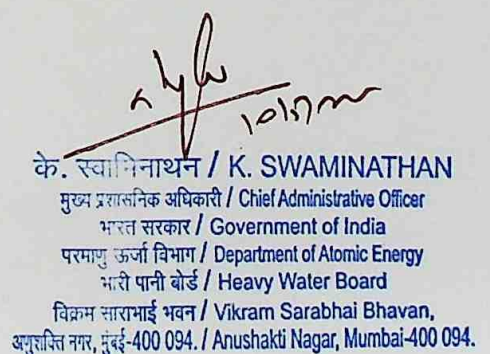 के. स्वामिनाथन / K. SWAMINATHAN
मुख्य प्रशासनिक अधिकारी / Chief Administrative Officer
भारत सरकार / Government of India
परमाणु ऊर्जा विभाग / Department of Atomic Energy
भारी पानी बोर्ड / Heavy Water Board
विक्रम साराभाई भवन / Vikram Sarabhai Bhavan,
अणुशक्ति नगर, मुंबई-400 094. / Anushakti Nagar, Mumbai-400 094.